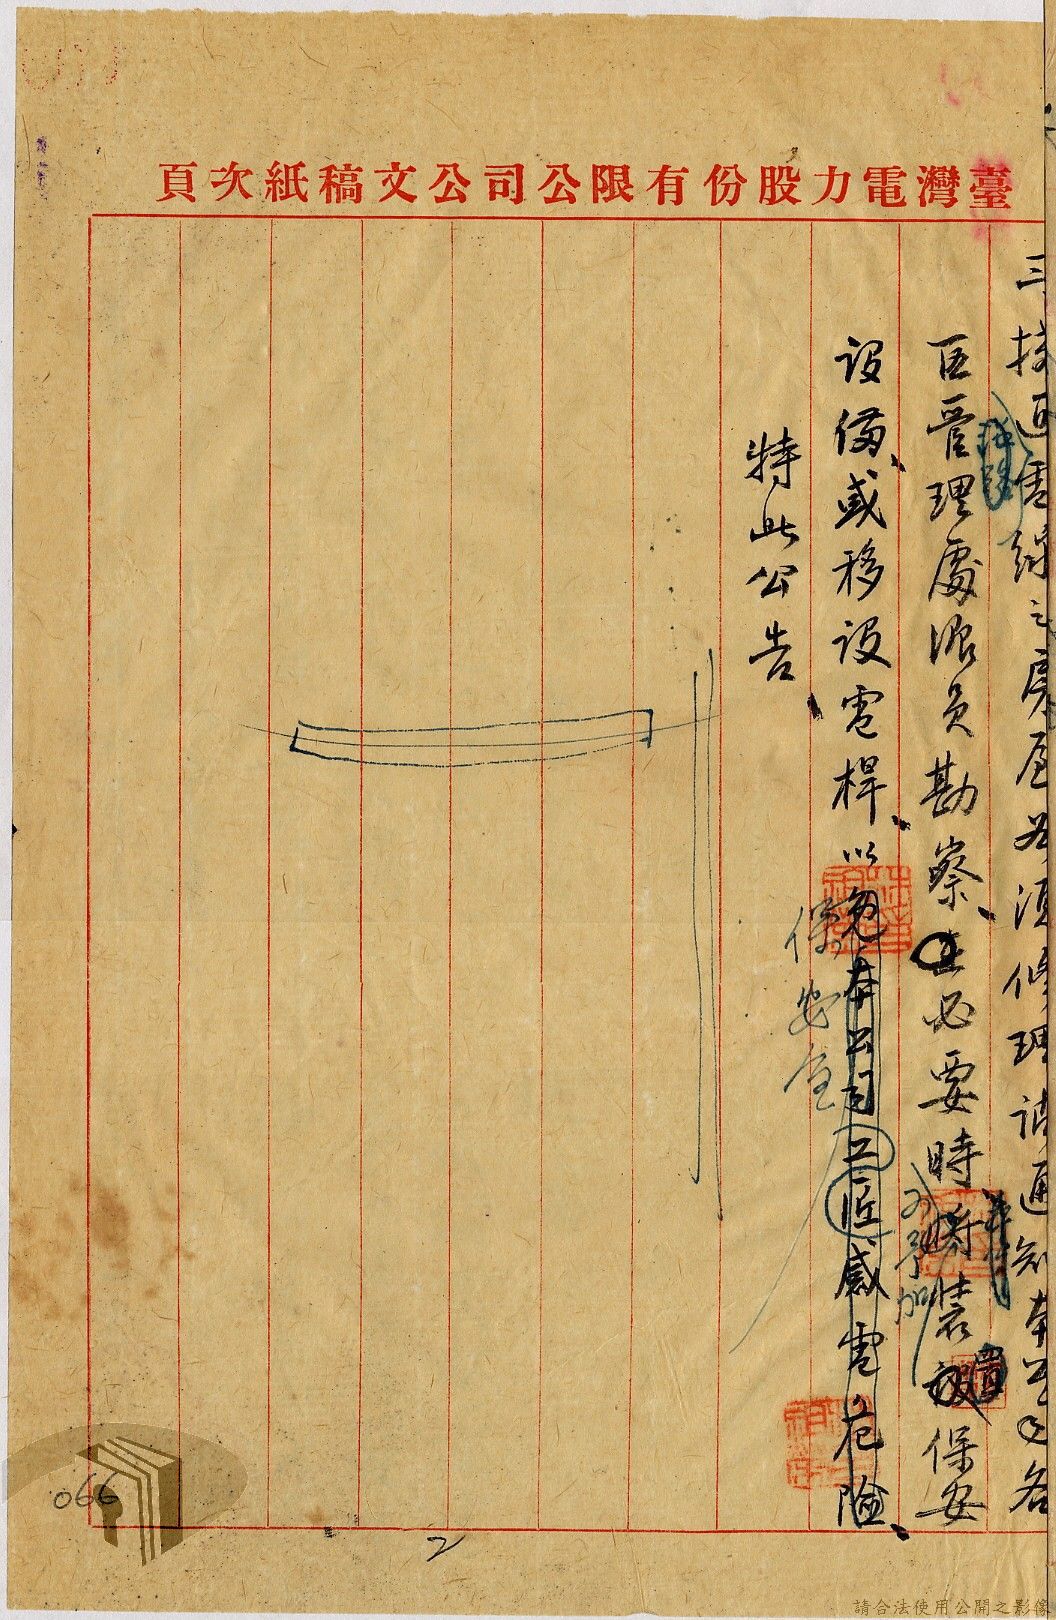 臺灣電力股份有限公司公文稿紙次頁
三、接近電線之房屋如須修理請通知本公司各
區管理處派員勘察、在必要時將裝設保安
設備、或移設電桿、以免本公司工匠感電危險、
保安全
可予加
置
特此公告、
066
2
請合法使用公開之影像